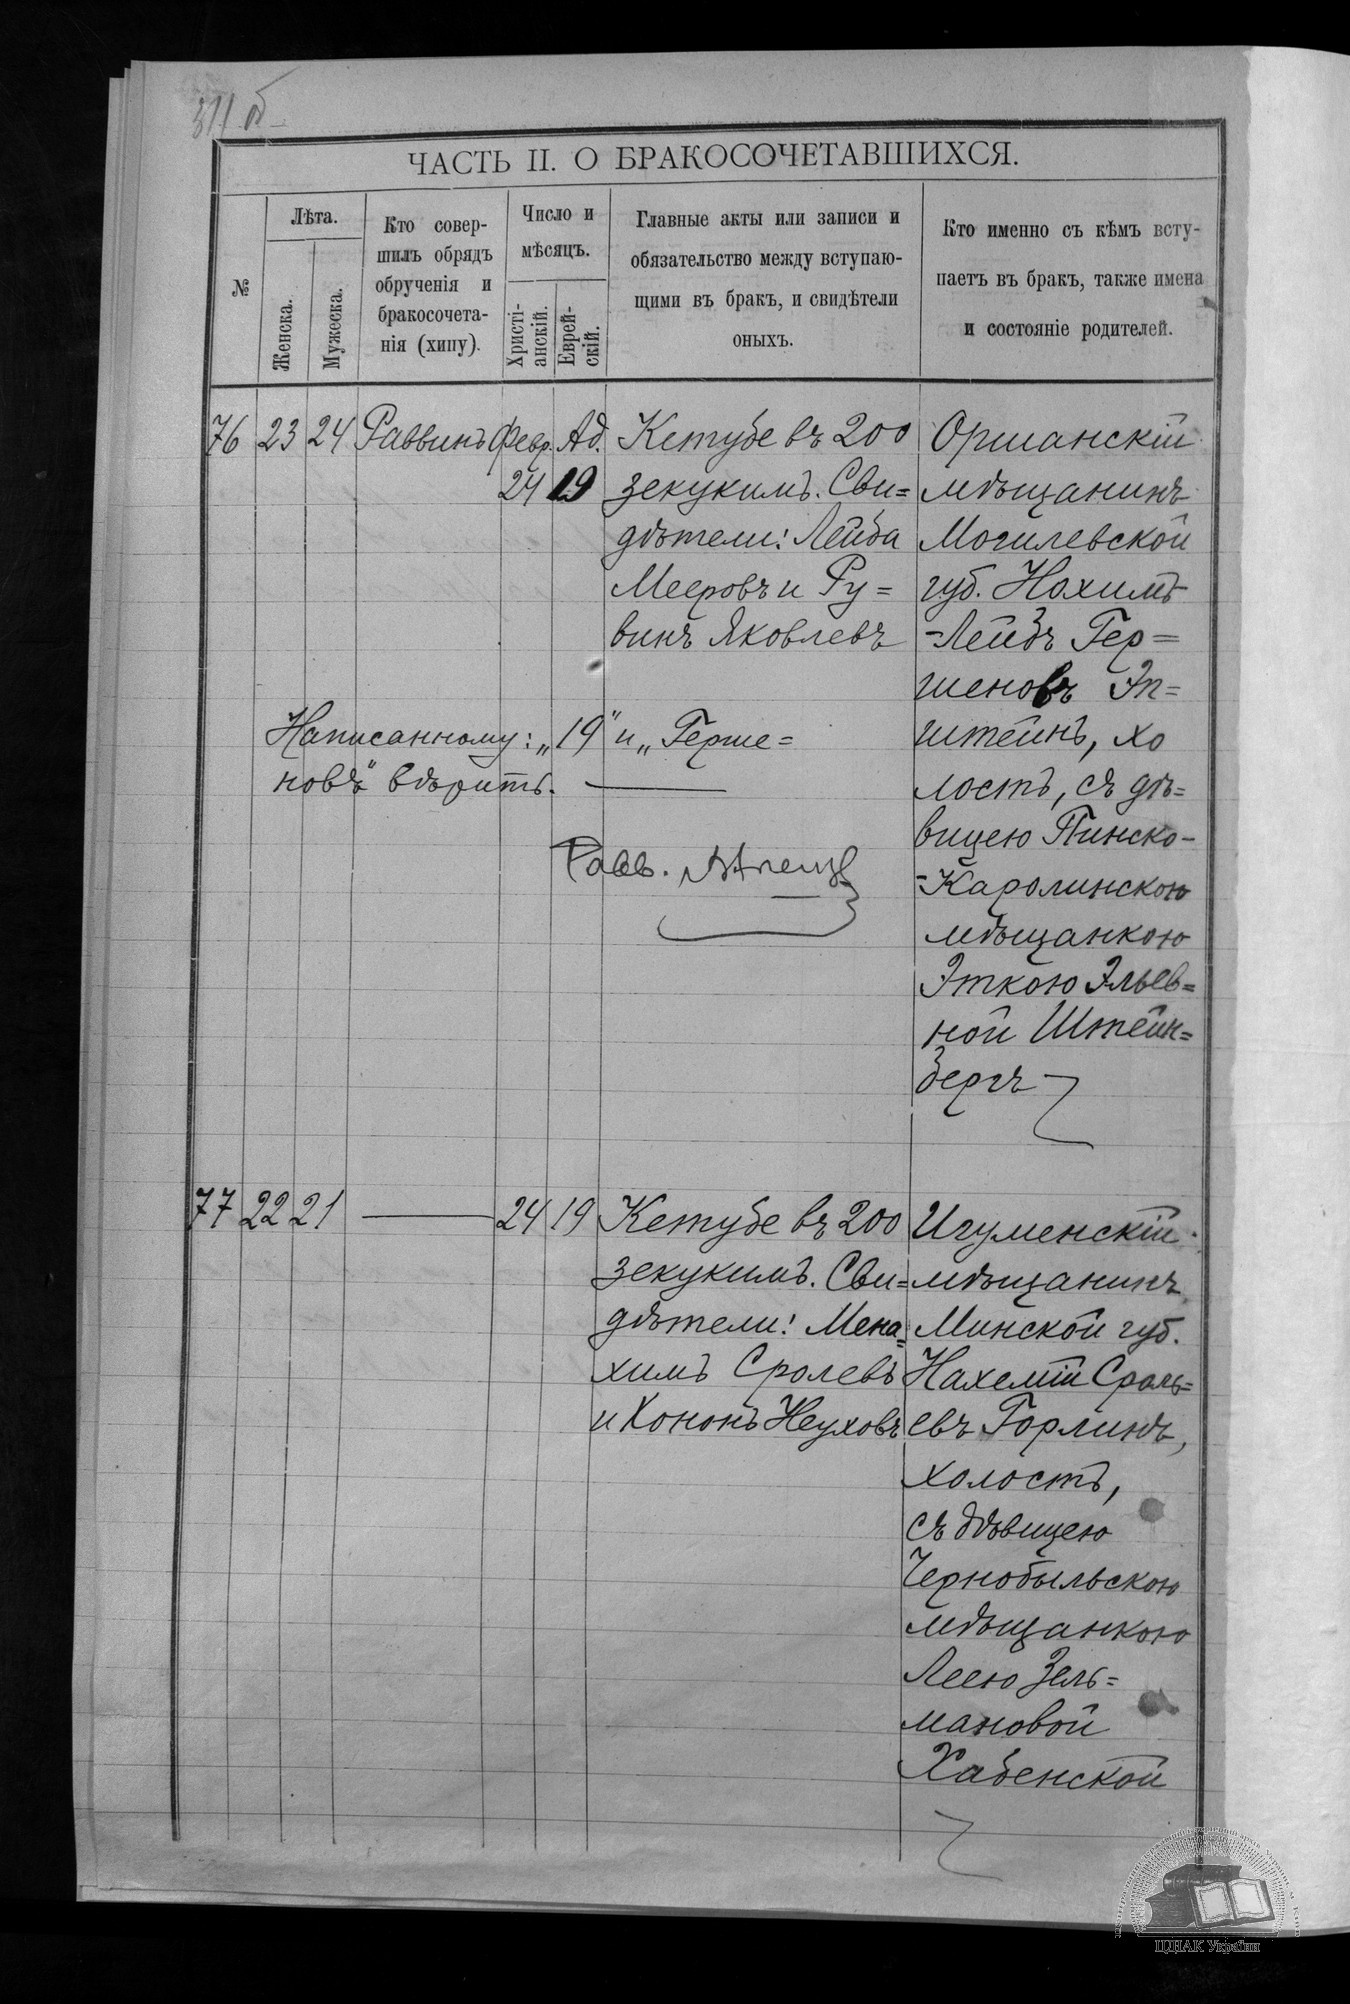 311 б
ЧАСТЬ II. О БРАКОСОЧЕТАВШИХСЯ.
№
Лѣта.
Женска.
Мужеска.
Кто совер-
шилъ обрядъ
обрученія и
бракосочета-
нія (хипу).
Число и
мѣсяцъ.
Христі-
анскій.
Еврей-
скій.
Главные акты или записи и
обязательство между вступаю-
щими въ бракъ, и свидѣтели
оныхъ.
Кто именно съ кѣмъ всту-
паетъ въ бракъ, также имена
и состояніе родителей.
76 23 24 Раввинъ Февр. 24 Ад. 19
Кетубе въ 200
зекукимъ. Сви=
дѣтели: Лейба
Мееровъ и Ру=
винъ Яковлевъ
Оршанскій
мѣщанинъ
Могилевской
губ. Нохимъ
=Лейбъ Гер=
шеновъ Эп=
штейнъ, хо
лостъ, съ дѣ=
вицею Пинско-
=Каролинскою
мѣщанкою
Эткою Эльев=
ной Штейн=
бергъ
Написанному: „19" и „Герше=
новъ" вѣрить.
Равв.
77 22 21 — 24 19
Кетубе въ 200
зекукимъ. Сви=
дѣтели: Мена=
химъ Сролевъ
и Хононъ Неуховъ
Игуменскій
мѣщанинъ
Минской губ.
Нахемій Сроль=
евъ Горлинъ,
холостъ,
съ дѣвицею
Чернобыльскою
мѣщанкою
Леею Зель=
мановой
Хабенской
ЦДІАК України